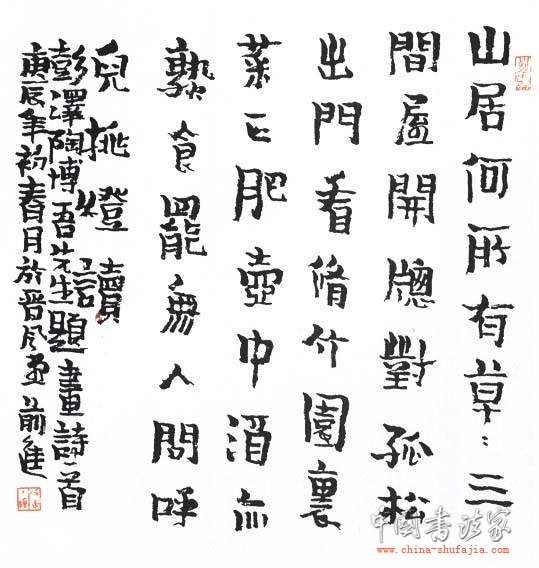 山居何所有草〻三
間屋開牕對孤松
出門看脩竹園裏
菜已肥壺中酒亦
熟食罷無人問呼
兒挑燈讀
彭澤陶博吾先生題畫詩一首
庚辰年初春月於晉风堂前進
中國书法家
www.china-shufajia.com